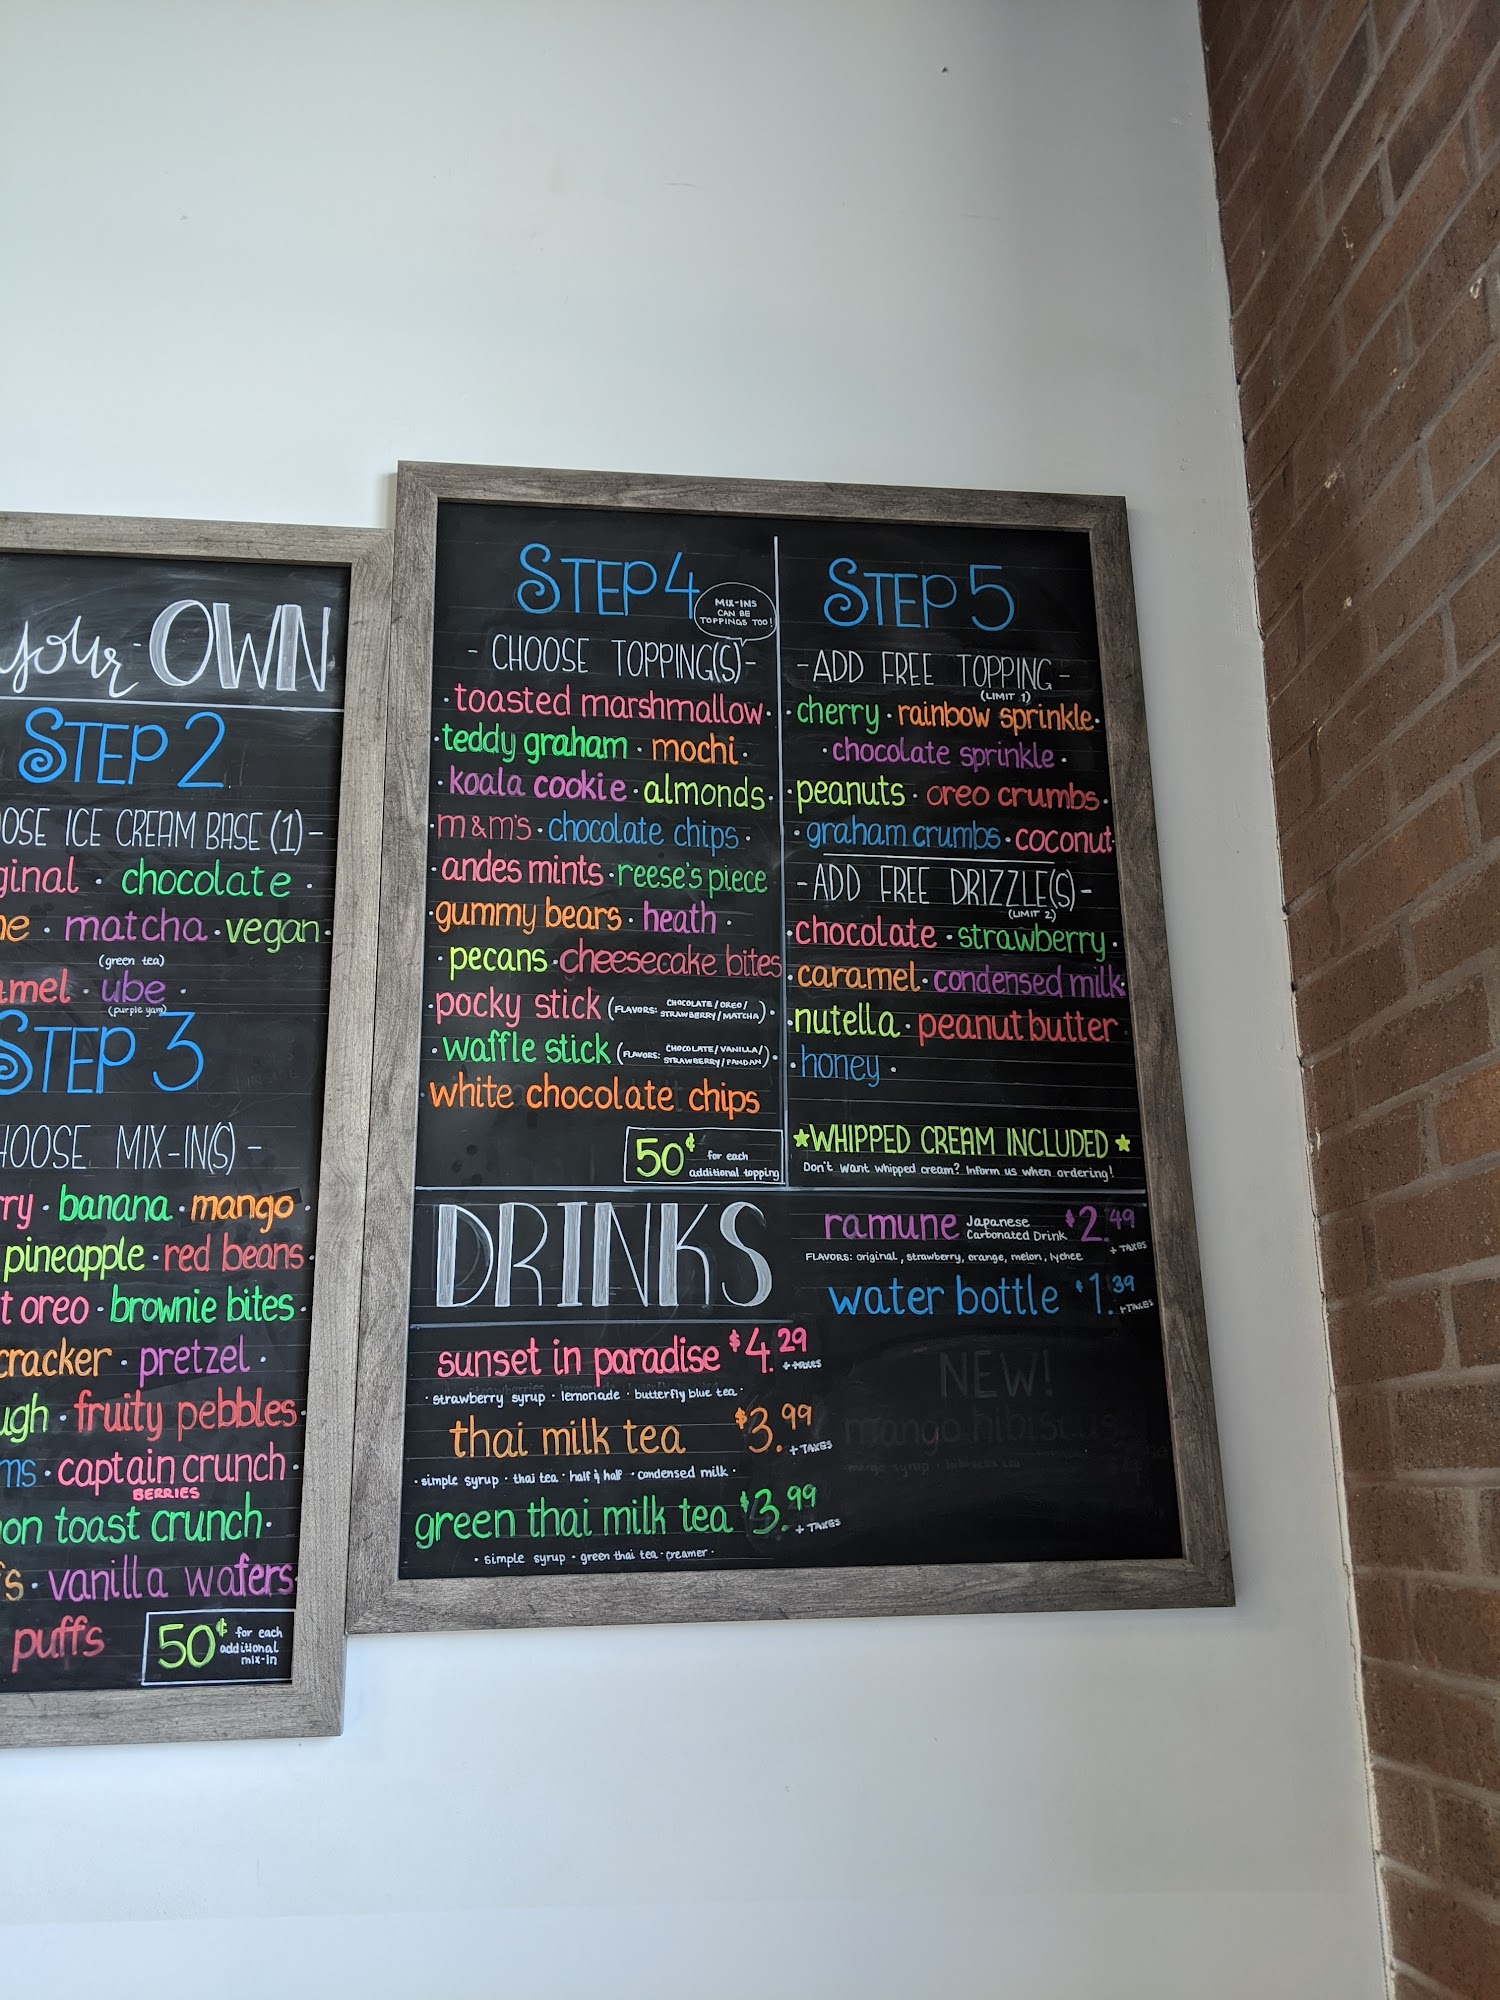 your OWN
STEP 2
OSE ICE CREAM BASE (1) -
ginal · chocolate ·
ne · matcha · vegan ·
(green tea)
amel · ube ·
(purple yam)
STEP 3
HOOSE MIX-IN(S) -
rry · banana · mango
pineapple · red beans ·
t oreo · brownie bites ·
cracker · pretzel ·
ugh · fruity pebbles ·
ms · captain crunch ·
BERRIES
on toast crunch ·
fs · vanilla wafers ·
puffs
50¢ for each
additional
mix-in
STEP 4
MIX-INS
CAN BE
TOPPINGS TOO!
- CHOOSE TOPPING(S) -
· toasted marshmallow ·
· teddy graham · mochi ·
· koala cookie · almonds ·
· m&m's · chocolate chips ·
· andes mints · reese's piece
· gummy bears · heath ·
· pecans · cheesecake bites
· pocky stick (FLAVORS: CHOCOLATE / OREO / STRAWBERRY / MATCHA) ·
· waffle stick (FLAVORS: CHOCOLATE / VANILLA / STRAWBERRY / PANDAN) ·
· white chocolate chips
50¢ for each
additional topping
STEP 5
- ADD FREE TOPPING -
(LIMIT 1)
· cherry · rainbow sprinkle ·
· chocolate sprinkle ·
· peanuts · oreo crumbs ·
· graham crumbs · coconut ·
- ADD FREE DRIZZLE(S) -
(LIMIT 2)
· chocolate · strawberry ·
· caramel · condensed milk ·
· nutella · peanut butter ·
· honey ·
★ WHIPPED CREAM INCLUDED ★
Don't want whipped cream? Inform us when ordering!
DRINKS
sunset in paradise $4.29 + taxes
· strawberry syrup · lemonade · butterfly blue tea ·
thai milk tea $3.99 + TAXES
· simple syrup · thai tea · half & half · condensed milk ·
green thai milk tea $3.99 + TAXES
· simple syrup · green thai tea · creamer ·
ramune Japanese Carbonated Drink $2.49 + TAXES
FLAVORS: original, strawberry, orange, melon, lychee
water bottle $1.39 + TAXES
NEW!
mango hibiscus